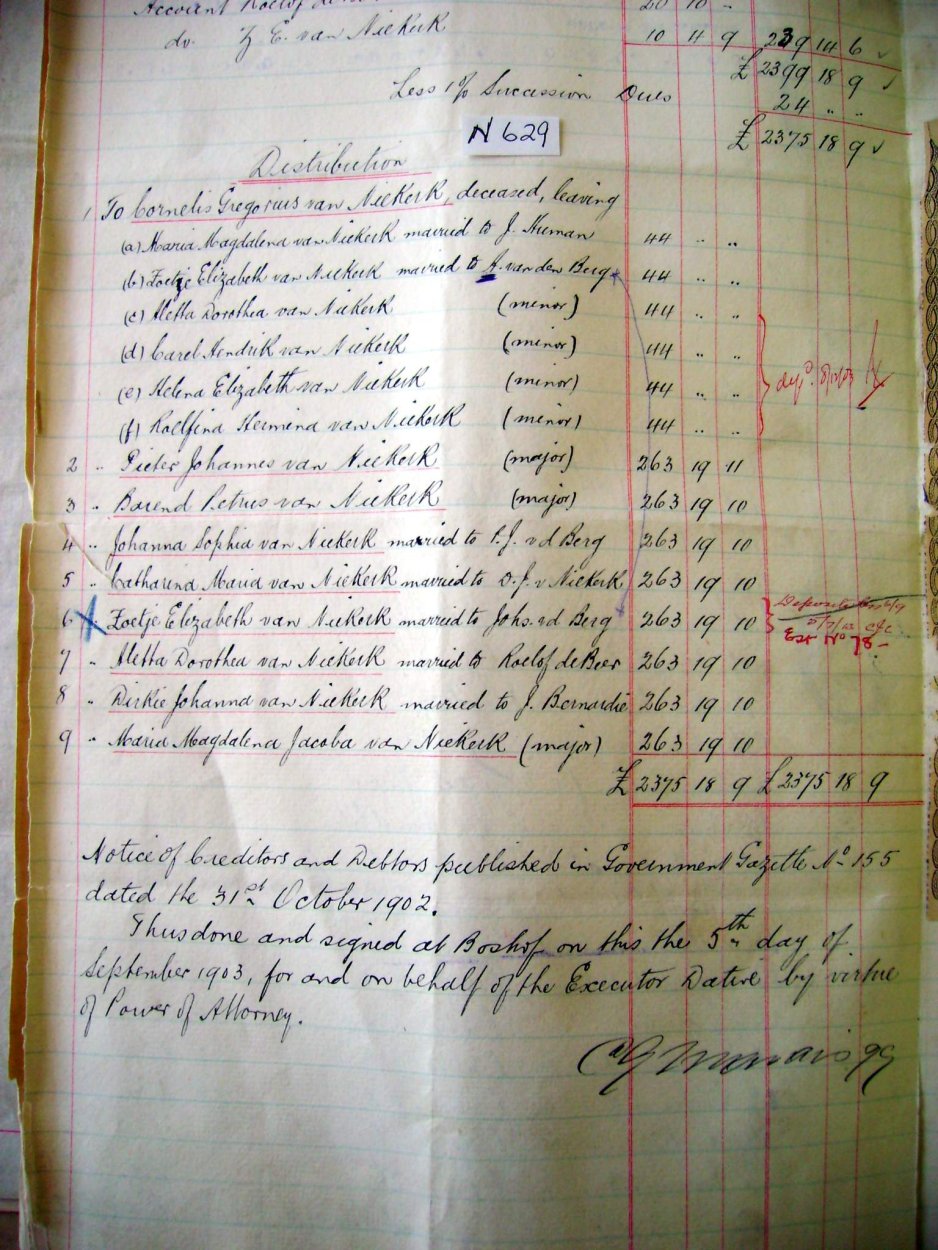 Account Roelof de
20 10 -
do. Z E. van Niekerk 10 4 9 239 14 6
£ 2399 18 9
Less 1% Succession Dues 24 " "
£ 2375 18 9
N 629
Distribution
1 To Cornelis Gregorius van Niekerk, deceased, leaving
(a) Maria Magdalena van Niekerk married to J. Human 44 " "
(b) Zoetje Elizabeth van Niekerk married to A. van den Berg 44 " "
(c) Aletta Dorothea van Niekerk (minor) 44 " "
(d) Carel Hendrik van Niekerk (minor) 44 " "
(e) Helena Elizabeth van Niekerk (minor) 44 " "
(f) Roelfina Hermina van Niekerk (minor) 44 " "
2 " Pieter Johannes van Niekerk (major) 263 19 11
3 " Barend Petrus van Niekerk (major) 263 19 10
4 " Johanna Sophia van Niekerk married to P. J. v d Berg 263 19 10
5 " Catharina Maria van Niekerk married to D. J. v Niekerk 263 19 10
6 Zoetje Elizabeth van Niekerk married to Johs. vd Berg 263 19 10
Est No 78-
7 " Aletta Dorothea van Niekerk married to Roelof de Beer 263 19 10
8 " Dirkie Johanna van Niekerk married to J. Bernardie 263 19 10
9 " Maria Magdalena Jacoba van Niekerk (major) 263 19 10
£ 2375 18 9 £ 2375 18 9
Notice of Creditors and Debtors published in Government Gazette No 155
dated the 31st October 1902.
Thus done and signed at Boshof on this the 5th day of
September 1903, for and on behalf of the Executor Dative by virtue
of Power of Attorney.